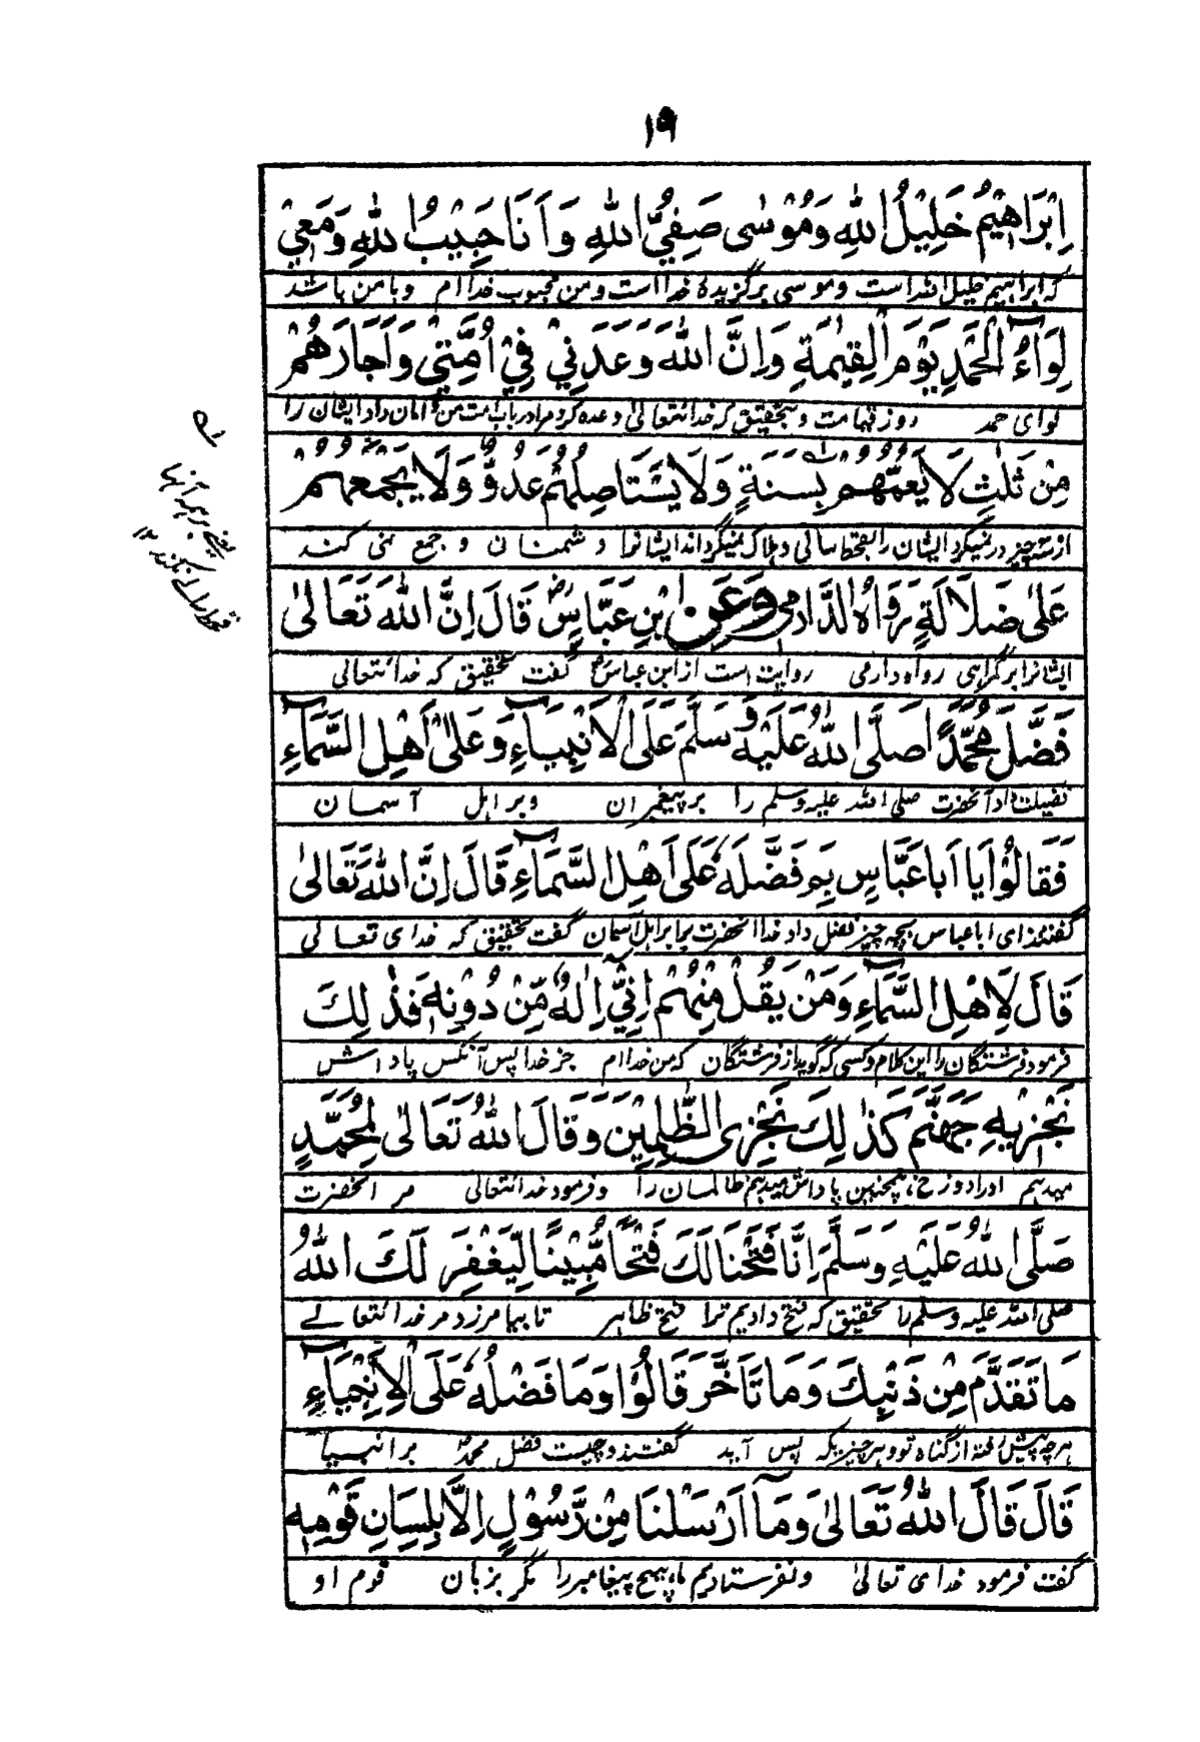 ۱۹
اِبْرَاهِيْمُ خَلِيْلُ اللهِ وَمُوْسٰى صَفِيُّ اللهِ وَاَنَا حَبِيْبُ اللهِ وَمَعِيْ
که ابراهیم خلیل الله است وموسی برگزیدهٔ خدا است ومن محبوب خداام وبا من باشد
لِوَآءُ الْحَمْدِ يَوْمَ الْقِيٰمَةِ وَاِنَّ اللهَ وَعَدَنِيْ فِيْ اُمَّتِيْ وَاَجَارَهُمْ
لوای حمد روز قیامت و بتحقیق که خدائتعالی وعده کرد مرا در باب امت من و امان داد ایشان را
مِنْ ثَلٰثٍ لَا يَعُمُّهُمْ بِسَنَةٍ وَلَا يَسْتَاصِلُهُمْ عَدُوٌّ وَلَا يَجْمَعُهُمْ
از سه چیز در نمیگیرد ایشان را بقحط سالی و هلاک نمیگرداند ایشانرا دشمنان و جمع نمی کند
عَلٰى ضَلَالَةٍ رَوَاهُ الدَّادمى وَعَنِ ابْنِ عَبَّاسٍ قَالَ اِنَّ اللهَ تَعَالٰى
ایشانرا بر گمراهی رواه دارمی روایت است از ابن عباس گفت تحقیق که خدائتعالی
فَضَّلَ مُحَمَّدًا صَلَّى اللهُ عَلَيْهِ وَسَلَّمَ عَلَى الْاَنْبِيَآءِ وَعَلٰى اَهْلِ السَّمَآءِ
فضیلت داد آنحضرت صلی الله علیه وسلم را بر پیغمبران وبر اهل آسمان
فَقَالُوْا يَا اَبَا عَبَّاسٍ بِمَ فَضَّلَهُ عَلَى اَهْلِ السَّمَآءِ قَالَ اِنَّ اللهَ تَعَالٰى
گفتند ای ابا عباس بچه چیز فضل داد خدا آنحضرت را بر اهل آسمان گفت تحقیق که خدای تعالی
قَالَ لِاَهْلِ السَّمَآءِ وَمَنْ يَقُلْ مِنْهُمْ اِنِّيْ اِلٰهٌ مِّنْ دُوْنِهٖ فَذٰلِكَ
فرمود فرشتگان را این کلام وکسی که گوید از فرشتگان که من خداام جز خدا پس آنکس پاداش
نَجْزِيْهِ جَهَنَّمَ كَذٰلِكَ نَجْزِى الظّٰلِمِيْنَ وَقَالَ اللهُ تَعَالٰى لِمُحَمَّدٍ
میدهیم اورا دوزخ همچنین پاداش میدهیم ظالمان را و فرمود خدائتعالی مر آنحضرت
صَلَّى اللهُ عَلَيْهِ وَسَلَّمَ اِنَّا فَتَحْنَا لَكَ فَتْحًا مُّبِيْنًا لِّيَغْفِرَ لَكَ اللهُ
صلی الله علیه وسلم را تحقیق که فتح دادیم ترا فتح ظاهر تا بیامرزد مر خدائتعالے
مَا تَقَدَّمَ مِنْ ذَنْبِكَ وَمَا تَاَخَّرَ قَالُوْا وَمَا فَضْلُهُ عَلَى الْاَنْبِيَآءِ
هرچه پیش از گناه تو و هر چیز یکه پس آید گفتند و چیست فضل محمد بر انبیا
قَالَ قَالَ اللهُ تَعَالٰى وَمَآ اَرْسَلْنَا مِنْ رَّسُوْلٍ اِلَّا بِلِسَانِ قَوْمِهٖ
گفت فرمود خدای تعالی ونفرستادیم ما هیچ پیغامبر را مگر بزبان قوم او